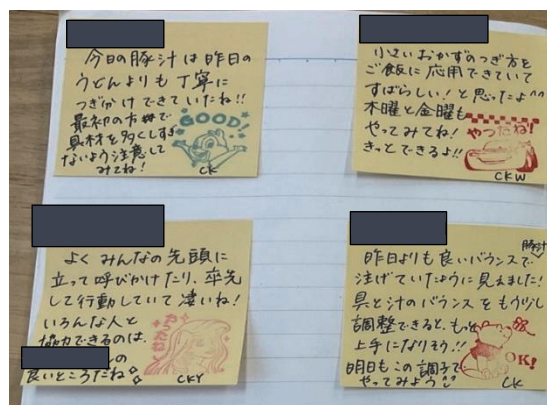 今日の豚汁は昨日の
うどんよりも丁寧に
つぎわけできていたね!!
最初の方で
具材を多くしすぎ
ないよう注意して
みてね!
GOOD!
CK
小さいおかずのつぎ方を
ご飯に応用できていて
すばらしい!と思ったよ^^
木曜と金曜も
やってみてね!
きっとできるよ!!
やったね!
CKW
よくみんなの先頭に
立って呼びかけたり、率先
して行動していて凄いね!
いろんな人と
協力できるのは、
の
良いところだね
CKY
豚汁
昨日よりも良いバランスで
注げていたように見えました!
具と汁のバランスをもう少し
調整できると、もっと
上手になりそう!!
明日もこの調子で
やってみよう
OK!
CK